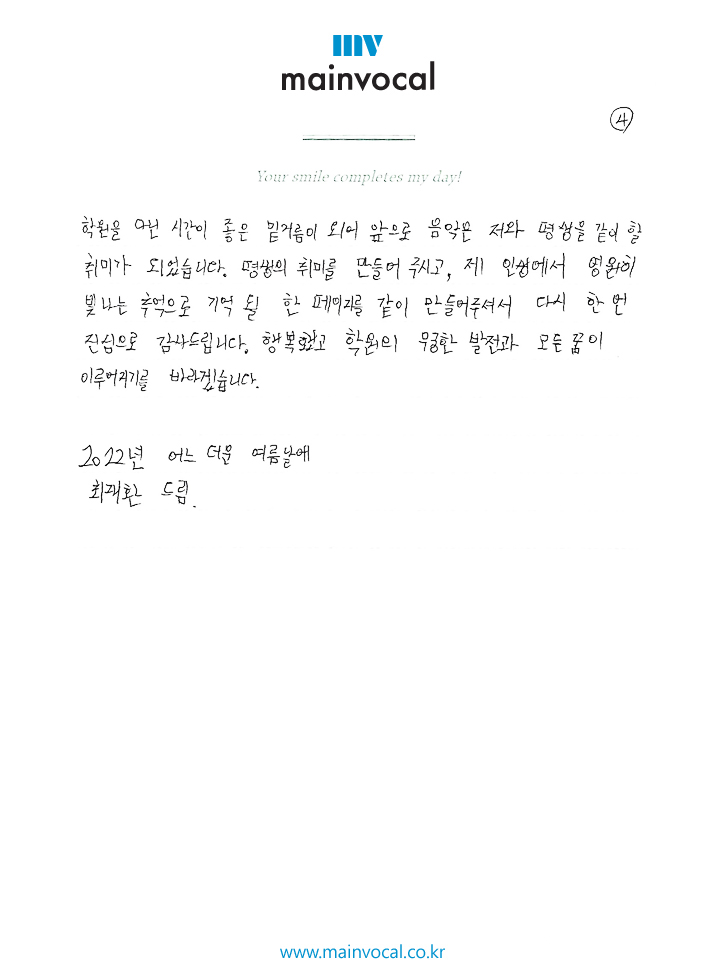 mv
mainvocal
4
Your smile completes my day!
학원을 다닌 시간이 좋은 밑거름이 되어 앞으로 음악은 저와 평생을 같이 할
취미가 되었습니다. 평생의 취미를 만들어 주시고, 제 인생에서 영원히
빛나는 추억으로 기억 될 한 페이지를 같이 만들어주셔서 다시 한 번
진심으로 감사드립니다. 행복했고 학원의 무궁한 발전과 모든 꿈이
이루어지기를 바라겠습니다.
2022년 어느 더운 여름날에
최재환 드림.
www.mainvocal.co.kr